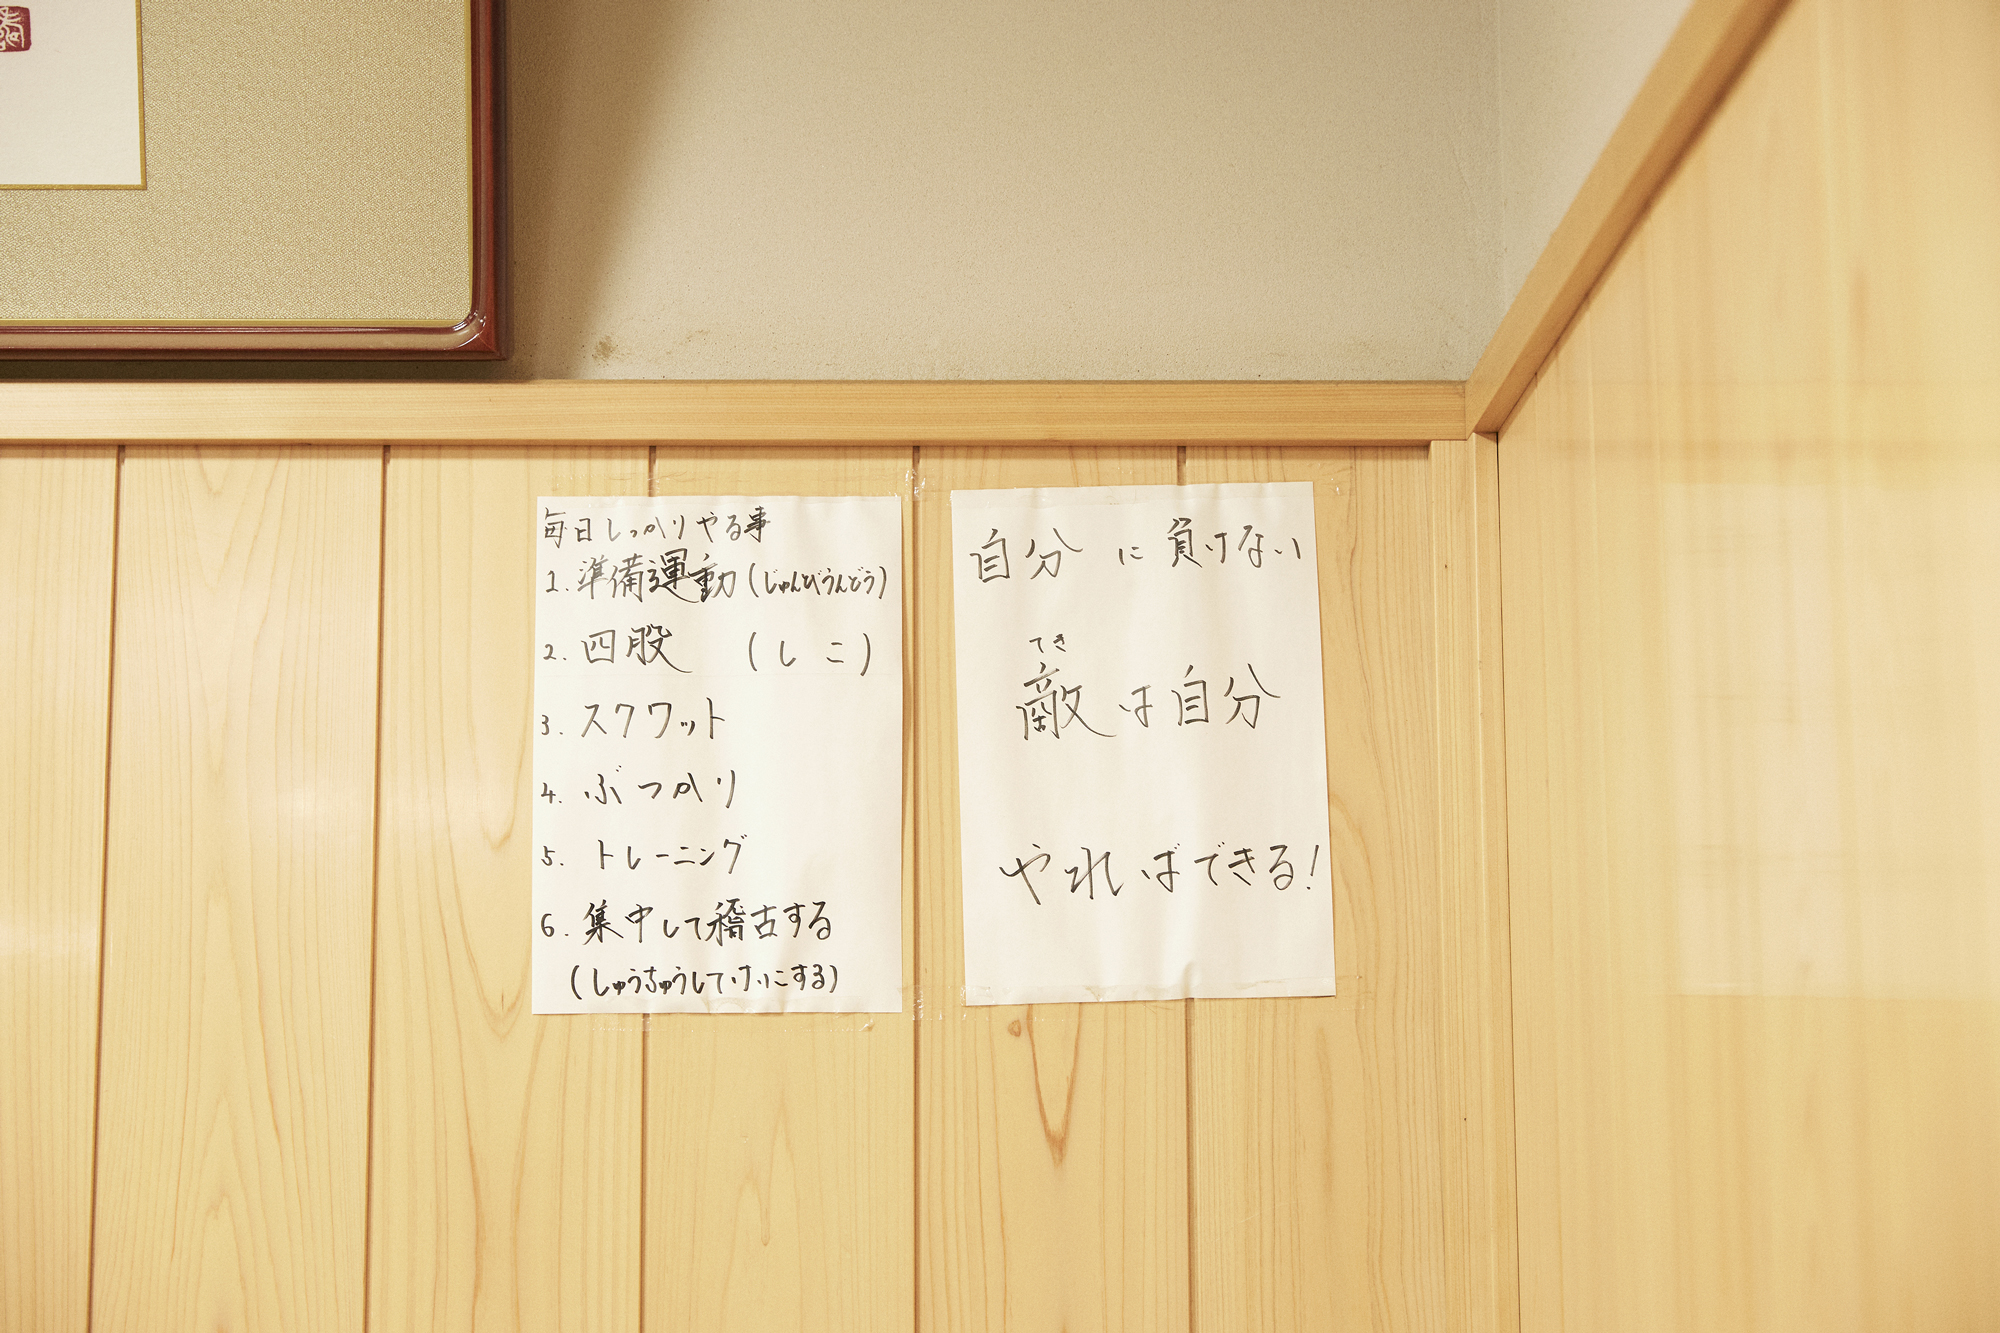 毎日しっかりやる事
1. 準備運動(じゅんびうんどう)
2. 四股 (しこ)
3. スクワット
4. ぶつかり
5. トレーニング
6. 集中して稽古する
(しゅうちゅうしてけいこする)
自分に負けない
てき
敵は自分
やればできる!